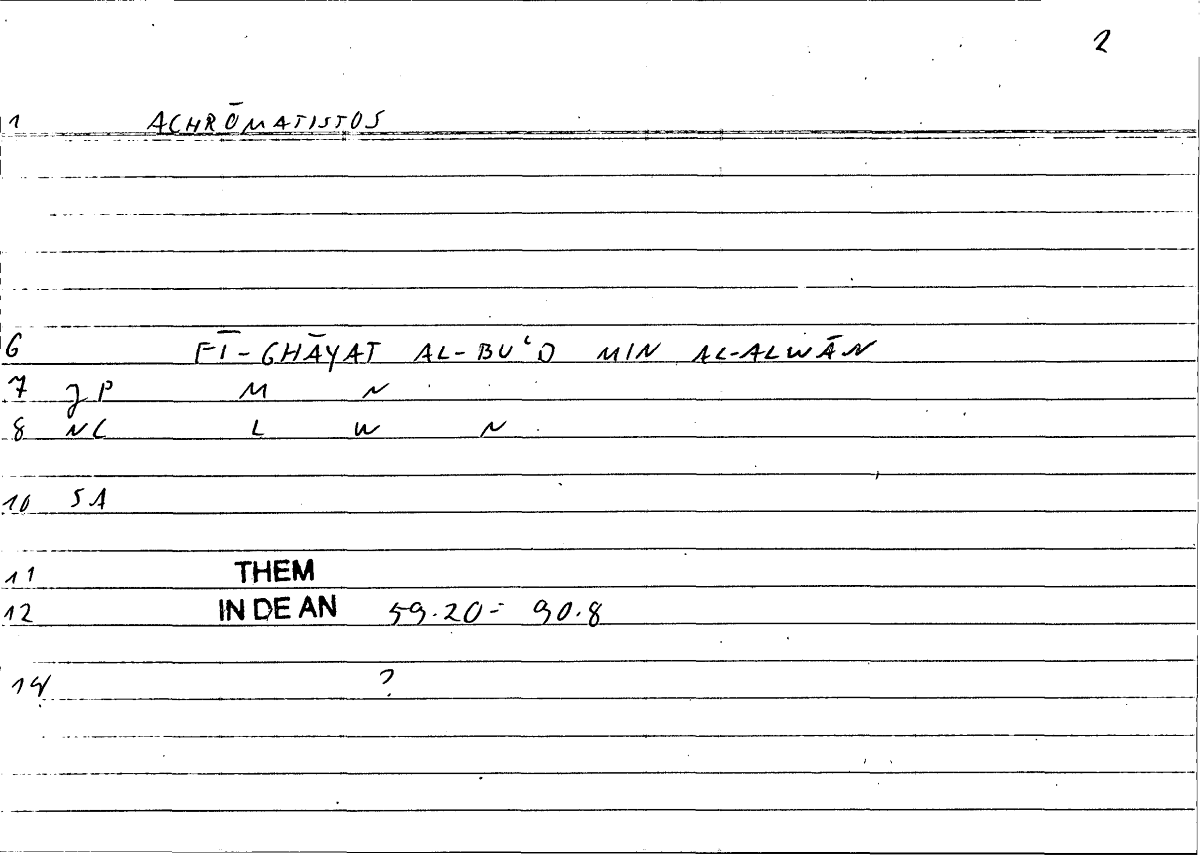 2
1 ACHRŌMATISTOS
6 FĪ-GHĀYAT AL-BUʿD MIN AL-ALWĀN
7 JP M N
8 NC L W N
10 SA
11 THEM
12 IN DE AN 59.20- 90.8
14 ?